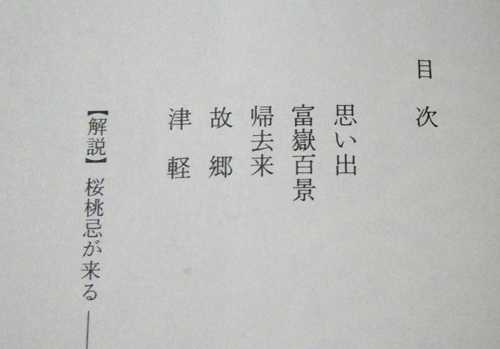 目次
思い出
富嶽百景
帰去来
故郷
津軽
【解説】桜桃忌が来る――